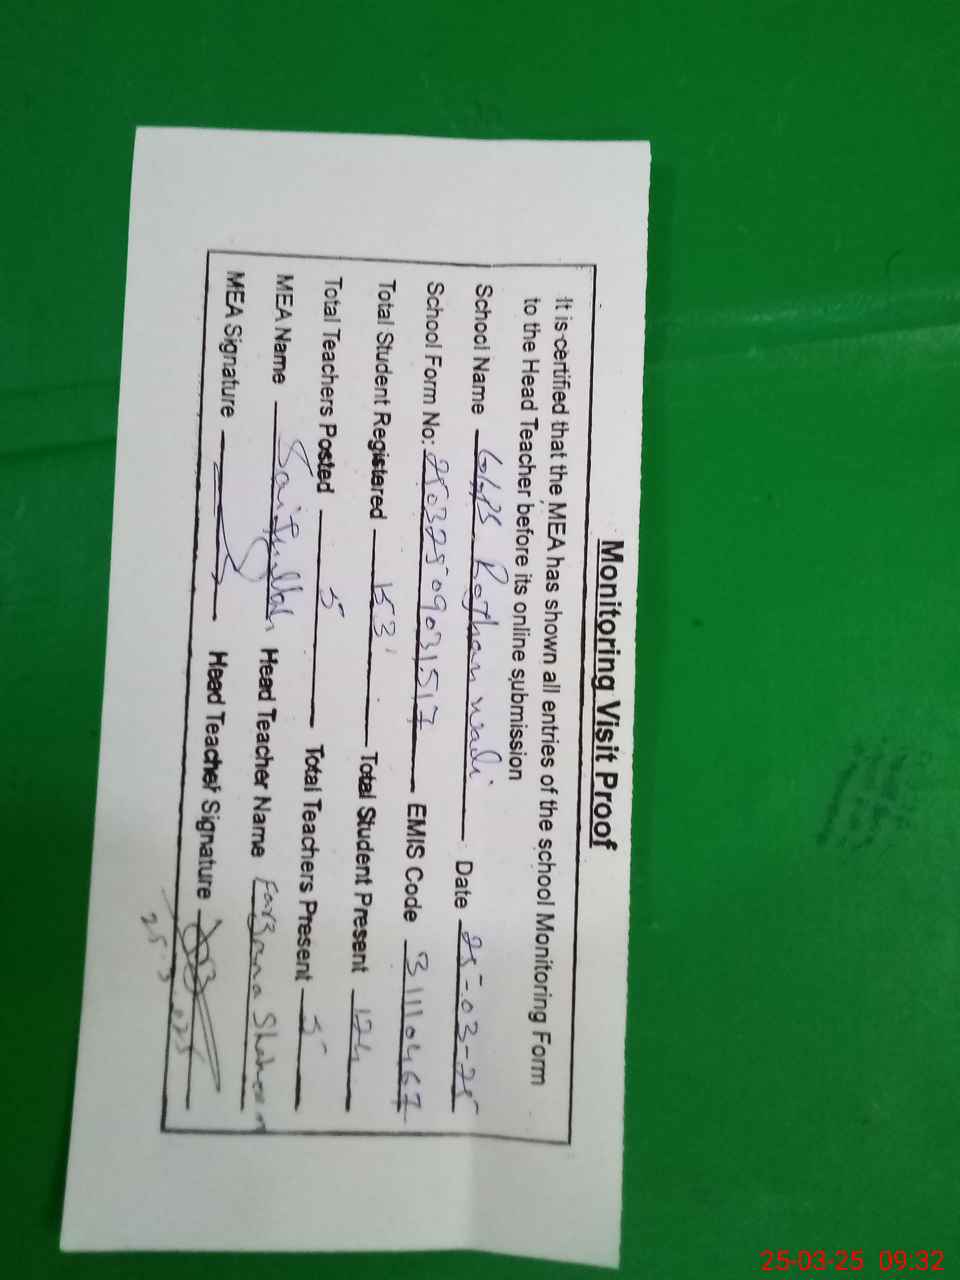 Monitoring Visit Proof
It is certified that the MEA has shown all entries of the school Monitoring Form
to the Head Teacher before its online submission
School Name GGPS Rothan wadi Date 25-03-25
School Form No: 25032509031517 EMIS Code 31110467
Total Student Registered 153 Total Student Present 124
Total Teachers Posted 5 Total Teachers Present 5
MEA Name Saifullah Head Teacher Name Farzana Shaheen
MEA Signature Head Teacher Signature
25-03-25 09:32